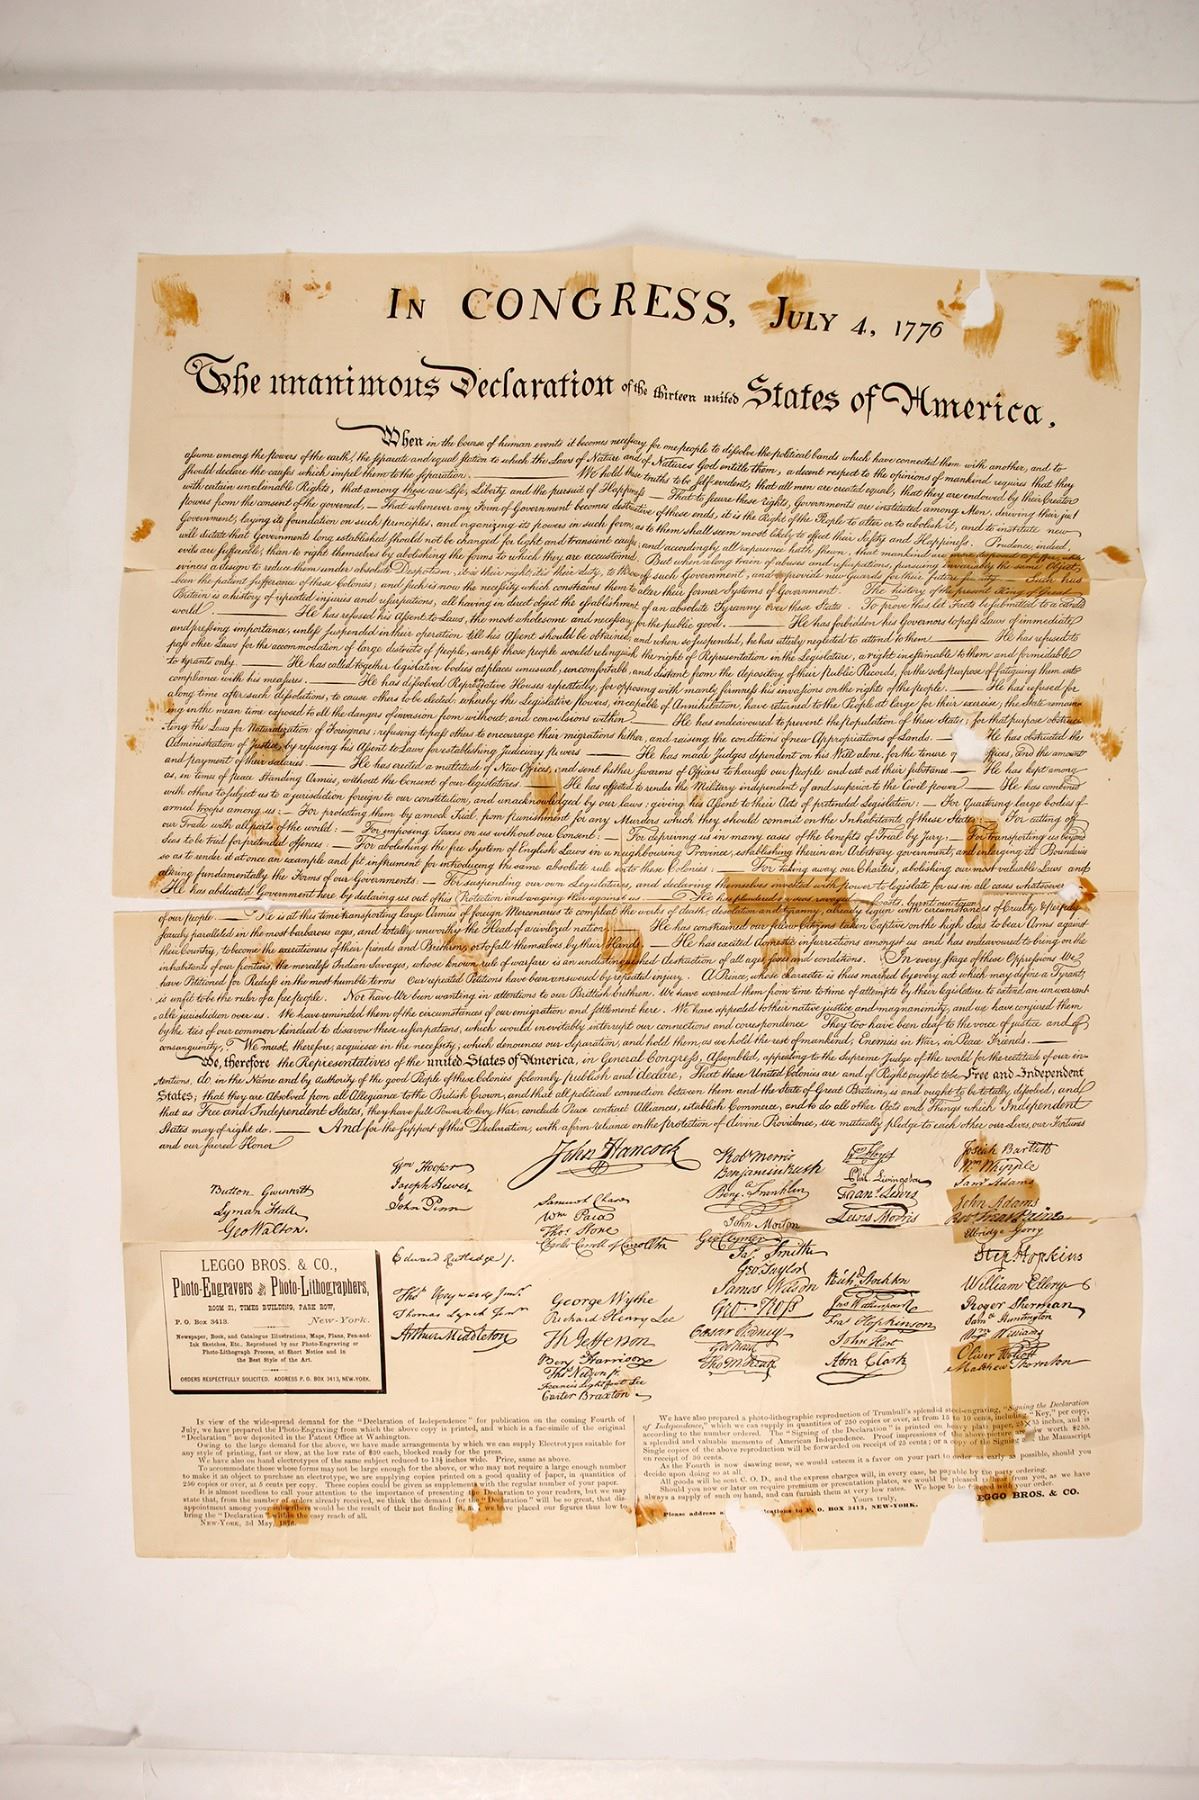 IN CONGRESS, JULY 4, 1776
The unanimous Declaration of the thirteen united States of America.
When in the Course of human events it becomes necessary for one people to dissolve the political bands which have connected them with another, and to
assume among the powers of the earth, the separate and equal station to which the Laws of Nature and of Nature's God entitle them, a decent respect to the opinions of mankind requires that they
should declare the causes which impel them to the separation. — We hold these truths to be self-evident, that all men are created equal, that they are endowed by their Creator
with certain unalienable Rights, that among these are Life, Liberty and the pursuit of Happiness — That to secure these rights, Governments are instituted among Men, deriving their just
powers from the consent of the governed, — That whenever any Form of Government becomes destructive of these ends, it is the Right of the People to alter or to abolish it, and to institute new
Government, laying its foundation on such principles, and organizing its powers in such form, as to them shall seem most likely to effect their Safety and Happiness. Prudence, indeed,
will dictate that Governments long established should not be changed for light and transient causes; and accordingly all experience hath shewn, that mankind are more disposed to suffer, while
evils are sufferable, than to right themselves by abolishing the forms to which they are accustomed. But when a long train of abuses and usurpations, pursuing invariably the same Object,
evinces a design to reduce them under absolute Despotism, it is their right, it is their duty, to throw off such Government, and to provide new Guards for their future security. — Such has
been the patient sufferance of these Colonies; and such is now the necessity which constrains them to alter their former Systems of Government. The history of the present King of Great
Britain is a history of repeated injuries and usurpations, all having in direct object the establishment of an absolute Tyranny over these States. To prove this let Facts be submitted to a candid
world. — He has refused his Assent to Laws, the most wholesome and necessary for the public good. — He has forbidden his Governors to pass Laws of immediate
and pressing importance, unless suspended in their operation till his Assent should be obtained; and when so suspended, he has utterly neglected to attend to them — He has refused to
pass other Laws for the accommodation of large districts of people, unless those people would relinquish the right of Representation in the Legislature, a right inestimable to them and formidable
to tyrants only. — He has called together legislative bodies at places unusual, uncomfortable, and distant from the depository of their public Records, for the sole purpose of fatiguing them into
compliance with his measures. — He has dissolved Representative Houses repeatedly, for opposing with manly firmness his invasions on the rights of the people. — He has refused for
a long time after such dissolutions, to cause others to be elected; whereby the Legislative powers, incapable of Annihilation, have returned to the People at large for their exercise; the State remain-
ing in the mean time exposed to all the dangers of invasion from without, and convulsions within — He has endeavoured to prevent the population of these States; for that purpose obstruc-
ting the Laws for Naturalization of Foreigners; refusing to pass others to encourage their migrations hither, and raising the conditions of new Appropriations of Lands. — He has obstructed the
Administration of Justice, by refusing his Assent to Laws for establishing Judiciary powers — He has made Judges dependent on his Will alone, for the tenure of offices, and the amount
and payment of their salaries. — He has erected a multitude of New Offices, and sent hither swarms of Officers to harass our People and eat out their substance. — He has kept among
us, in times of peace Standing Armies, without the Consent of our legislatures. — He has affected to render the Military independent of and superior to the Civil power — He has combined
with others to subject us to a jurisdiction foreign to our constitution, and unacknowledged by our laws; giving his Assent to their Acts of pretended Legislation: — For Quartering large bodies of
armed troops among us: — For protecting them by a mock Trial, from punishment for any Murders which they should commit on the Inhabitants of these States: — For cutting off
our Trade with all parts of the world: — For imposing Taxes on us without our Consent: — For depriving us in many cases of the benefits of Trial by Jury: — For transporting us beyond
Seas to be tried for pretended offences: — For abolishing the free System of English Laws in a neighbouring Province, establishing therein an Arbitrary government, and enlarging its Boundaries
so as to render it at once an example and fit instrument for introducing the same absolute rule into these Colonies: — For taking away our Charters, abolishing our most valuable Laws and
altering fundamentally the Forms of our Governments: — For suspending our own Legislatures, and declaring themselves invested with power to legislate for us in all cases whatsoever
He has abdicated Government here, by declaring us out of his Protection and waging War against us. — He has plundered our seas, ravaged Coasts, burnt our towns
of our people. — He is at this time transporting large Armies of foreign Mercenaries to compleat the works of death, desolation and tyranny, already begun with circumstances of Cruelty & perfidy
scarcely paralleled in the most barbarous ages, and totally unworthy the Head of a civilized nation — He has constrained our fellow Citizens taken Captive on the high Seas to bear Arms against
their Country, to become the executioners of their friends and Brethren, or to fall themselves by their Hands. — He has excited domestic insurrections amongst us and has endeavoured to bring on the
inhabitants of our frontiers, the merciless Indian Savages, whose known rule of warfare is an undistinguished destruction of all ages, sexes and conditions. In every stage of these Oppressions We
have Petitioned for Redress in the most humble terms Our repeated Petitions have been answered by repeated injury. A Prince, whose character is thus marked by every act which may define a Tyrant,
is unfit to be the ruler of a free people. Nor have We been wanting in attentions to our Brittish brethren. We have warned them from time to time of attempts by their legislature to extend an unwarrant
able jurisdiction over us. We have reminded them of the circumstances of our emigration and settlement here. We have appealed to their native justice and magnanimity, and we have conjured them
by the ties of our common kindred to disavow these usurpations, which would inevitably interrupt our connections and correspondence They too have been deaf to the voice of justice and of
consanguinity. We must, therefore, acquiesce in the necessity, which denounces our Separation, and hold them, as we hold the rest of mankind, Enemies in War, in Peace Friends. —
We, therefore the Representatives of the united States of America, in General Congress, Assembled, appealing to the Supreme Judge of the world for the rectitude of our in-
tentions, do, in the Name and by Authority of the good People of these Colonies solemnly publish and declare, That these United Colonies are and of Right ought to be Free and Independent
States; that they are Absolved from all Allegiance to the British Crown, and that all political connection between them and the State of Great Britain, is and ought to be totally dissolved; and
that as Free and Independent States, they have full Power to levy War, conclude Peace contract Alliances, establish Commerce, and to do all other Acts and Things which Independent
States may of right do. — And for the support of this Declaration, with a firm reliance on the Protection of divine Providence, we mutually pledge to each other our Lives, our Fortunes
and our sacred Honor
John Hancock
Button Gwinnett
Lyman Hall
Geo Walton.
Wm Hooper
Joseph Hewes,
John Penn
Edward Rutledge /.
Thos Heyward Junr.
Thomas Lynch Junr.
Arthur Middleton
Samuel Chase
Wm Paca
Thos Stone
Charles Carroll of Carrollton
George Wythe
Richard Henry Lee
Th Jefferson
Benj Harrison
Thos Nelson jr.
Francis Lightfoot Lee
Carter Braxton
Robt Morris
Benjamin Rush
Benja Franklin
John Morton
Geo Clymer
Jas Smith
Geo Taylor
James Wilson
Geo. Ross
Caesar Rodney
Geo Read
Tho M:Kean
Wm Floyd
Phil. Livingston
Frans. Lewis
Lewis Morris
Richd. Stockton
Jno Witherspoon
Fras. Hopkinson
John Hart
Abra Clark
Josiah Bartlett
Wm Whipple
Saml Adams
John Adams
Robt Treat Paine
Elbridge Gerry
Step. Hopkins
William Ellery
Roger Sherman
Samel Huntington
Wm Williams
Oliver Wolcott
Matthew Thornton
LEGGO BROS. & CO.,
Photo-Engravers and Photo-Lithographers,
ROOM 21, TIMES BUILDING, PARK ROW,
P. O. Box 3413. New-York.
Newspaper, Book, and Catalogue Illustrations, Maps, Plans, Pen-and-
Ink Sketches, Etc., Reproduced by our Photo-Engraving or
Photo-Lithograph Process, at Short Notice and in
the Best Style of the Art.
ORDERS RESPECTFULLY SOLICITED. ADDRESS P. O. BOX 3413, NEW-YORK.
In view of the wide-spread demand for the "Declaration of Independence" for publication on the coming Fourth of
July, we have prepared the Photo-Engraving from which the above copy is printed, and which is a fac-simile of the original
"Declaration" now deposited in the Patent Office at Washington.
Owing to the large demand for the above, we have made arrangements by which we can supply Electrotypes suitable for
any style of printing, fast or slow, at the low rate of $20 each, blocked ready for the press.
We have also on hand electrotypes of the same subject reduced to 13½ inches wide. Price, same as above.
To accommodate those whose forms may not be large enough for the above, or who may not require a large enough number
to make it an object to purchase an electrotype, we are supplying copies printed on a good quality of paper, in quantities of
250 copies or over, at 5 cents per copy. These copies could be given as supplements with the regular number of your paper.
It is almost needless to call your attention to the importance of presenting the Declaration to your readers, but we may
state that, from the number of orders already received, we think the demand for the "Declaration" will be so great, that dis-
appointment among your subscribers would be the result of their not finding it. we have placed our figures thus low to
bring the "Declaration" within the easy reach of all.
NEW-YORK, 3d May, 1876.
We have also prepared a photo-lithographic reproduction of Trumbull's splendid steel-engraving, "Signing the Declaration
of Independence," which we can supply in quantities of 250 copies or over, at from 15 to 10 cents, including "Key," per copy,
according to the number ordered. The "Signing of the Declaration" is printed on heavy plate paper, 25×35 inches, and is
a splendid and valuable memento of American Independence. Proof impressions of the above picture are now worth $250.
Single copies of the above reproduction will be forwarded on receipt of 25 cents; or a copy of the Signing and the Manuscript
on receipt of 30 cents.
As the Fourth is now drawing near, we would esteem it a favor on your part to order as early as possible, should you
decide upon doing so at all.
All goods will be sent C. O. D., and the express charges will, in every case, be payable by the party ordering.
Should you now or later on require premium or presentation plates, we would be pleased to hear from you, as we have
always a supply of such on hand, and can furnish them at very low rates. We hope to be favored with your order.
Yours truly, LEGGO BROS. & CO.
Please address P. O. BOX 3413, NEW-YORK.